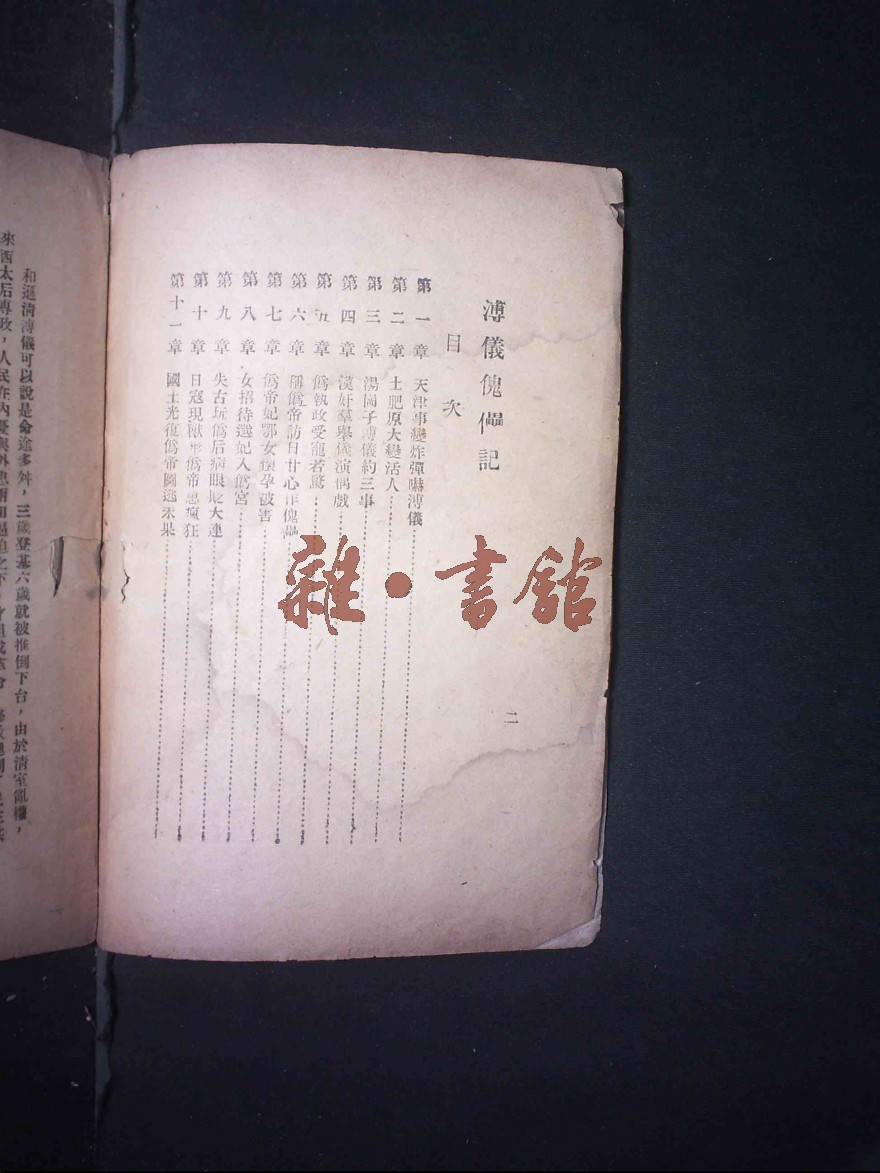 溥儀傀儡記
目次
第一章 天津事變炸彈嚇溥儀
第二章 土肥原大變活人
第三章 湯岡子溥儀約三事
第四章 漢奸羣舉儀演偶戲
第五章 僞執政受寵若驚
第六章 稱僞帝訪日甘心作傀儡
第七章 僞帝妃鄂女懷孕被害
第八章 女招待選妃入僞宮
第九章 失古玩僞后病眼貶大連
第十章 日寇現獸形僞帝思瘋狂
第十一章 國土光復僞帝圖逃未果
二
雜•書館
和遜清溥儀可以說是命途多舛，三歲登基六歲就被推倒下台，由於清室亂權，
來西太后專政，人民在內憂與外患兩相逼迫之下